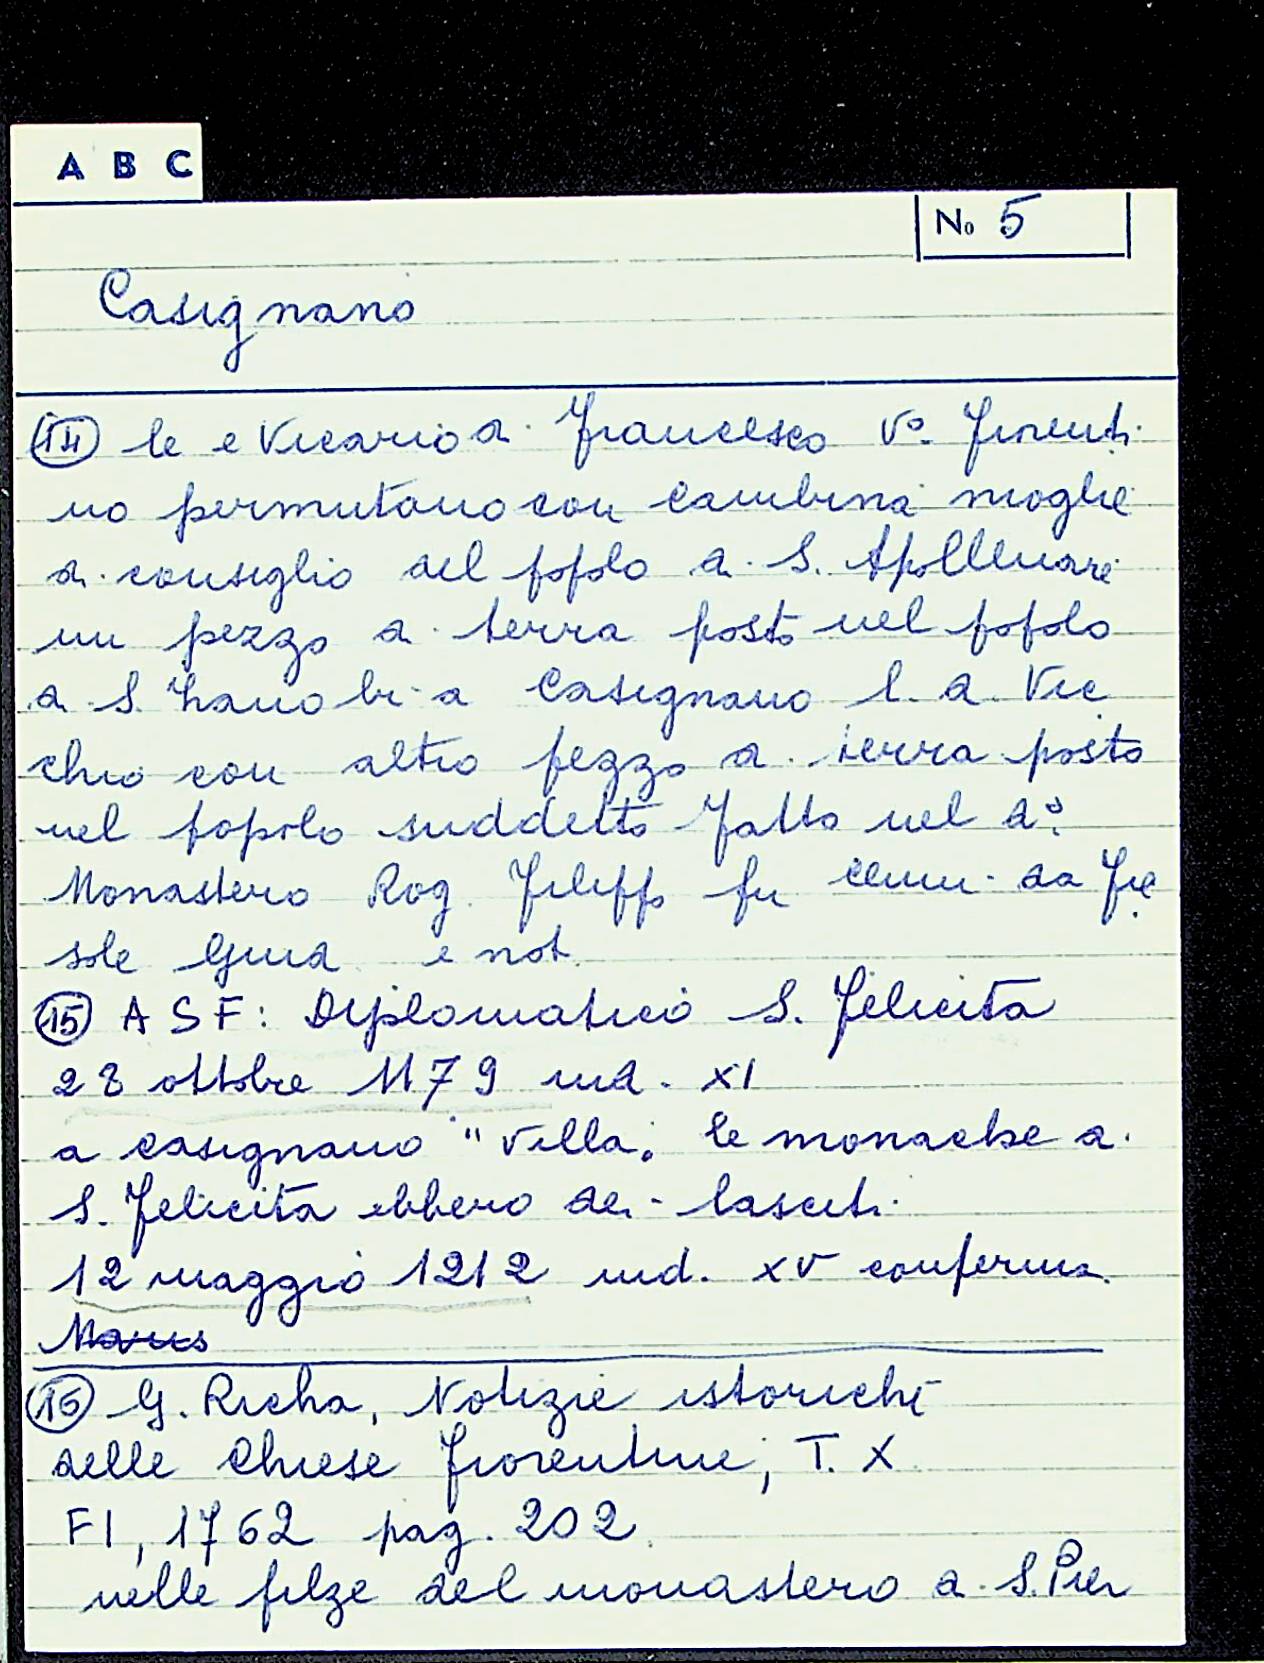 A B C
No 5
Casignano
14 le e Vicario di Francesco V° Fiorenti
no permutano con Cambina moglie
di consiglio del popolo di S. Apollinare
un pezzo di terra posto nel popolo
di S. Zanobi a Casignano l. d. Vic
chio con altro pezzo di terra posto
nel popolo suddetto fatto nel d°
Monastero Rog. Filippo fu da Fie
sole Giud e not.
15 ASF: Diplomatico S. Felicita
28 ottobre 1179 ind. XI
a Casignano "Villa" le monache di
S. Felicita ebbero dei lasciti
12 maggio 1212 ind. XV conferma
16 G. Richa, Notizie istoriche
delle Chiese Fiorentine, T. X
FI, 1762 pag. 202
nelle filze del monastero di S. Pier